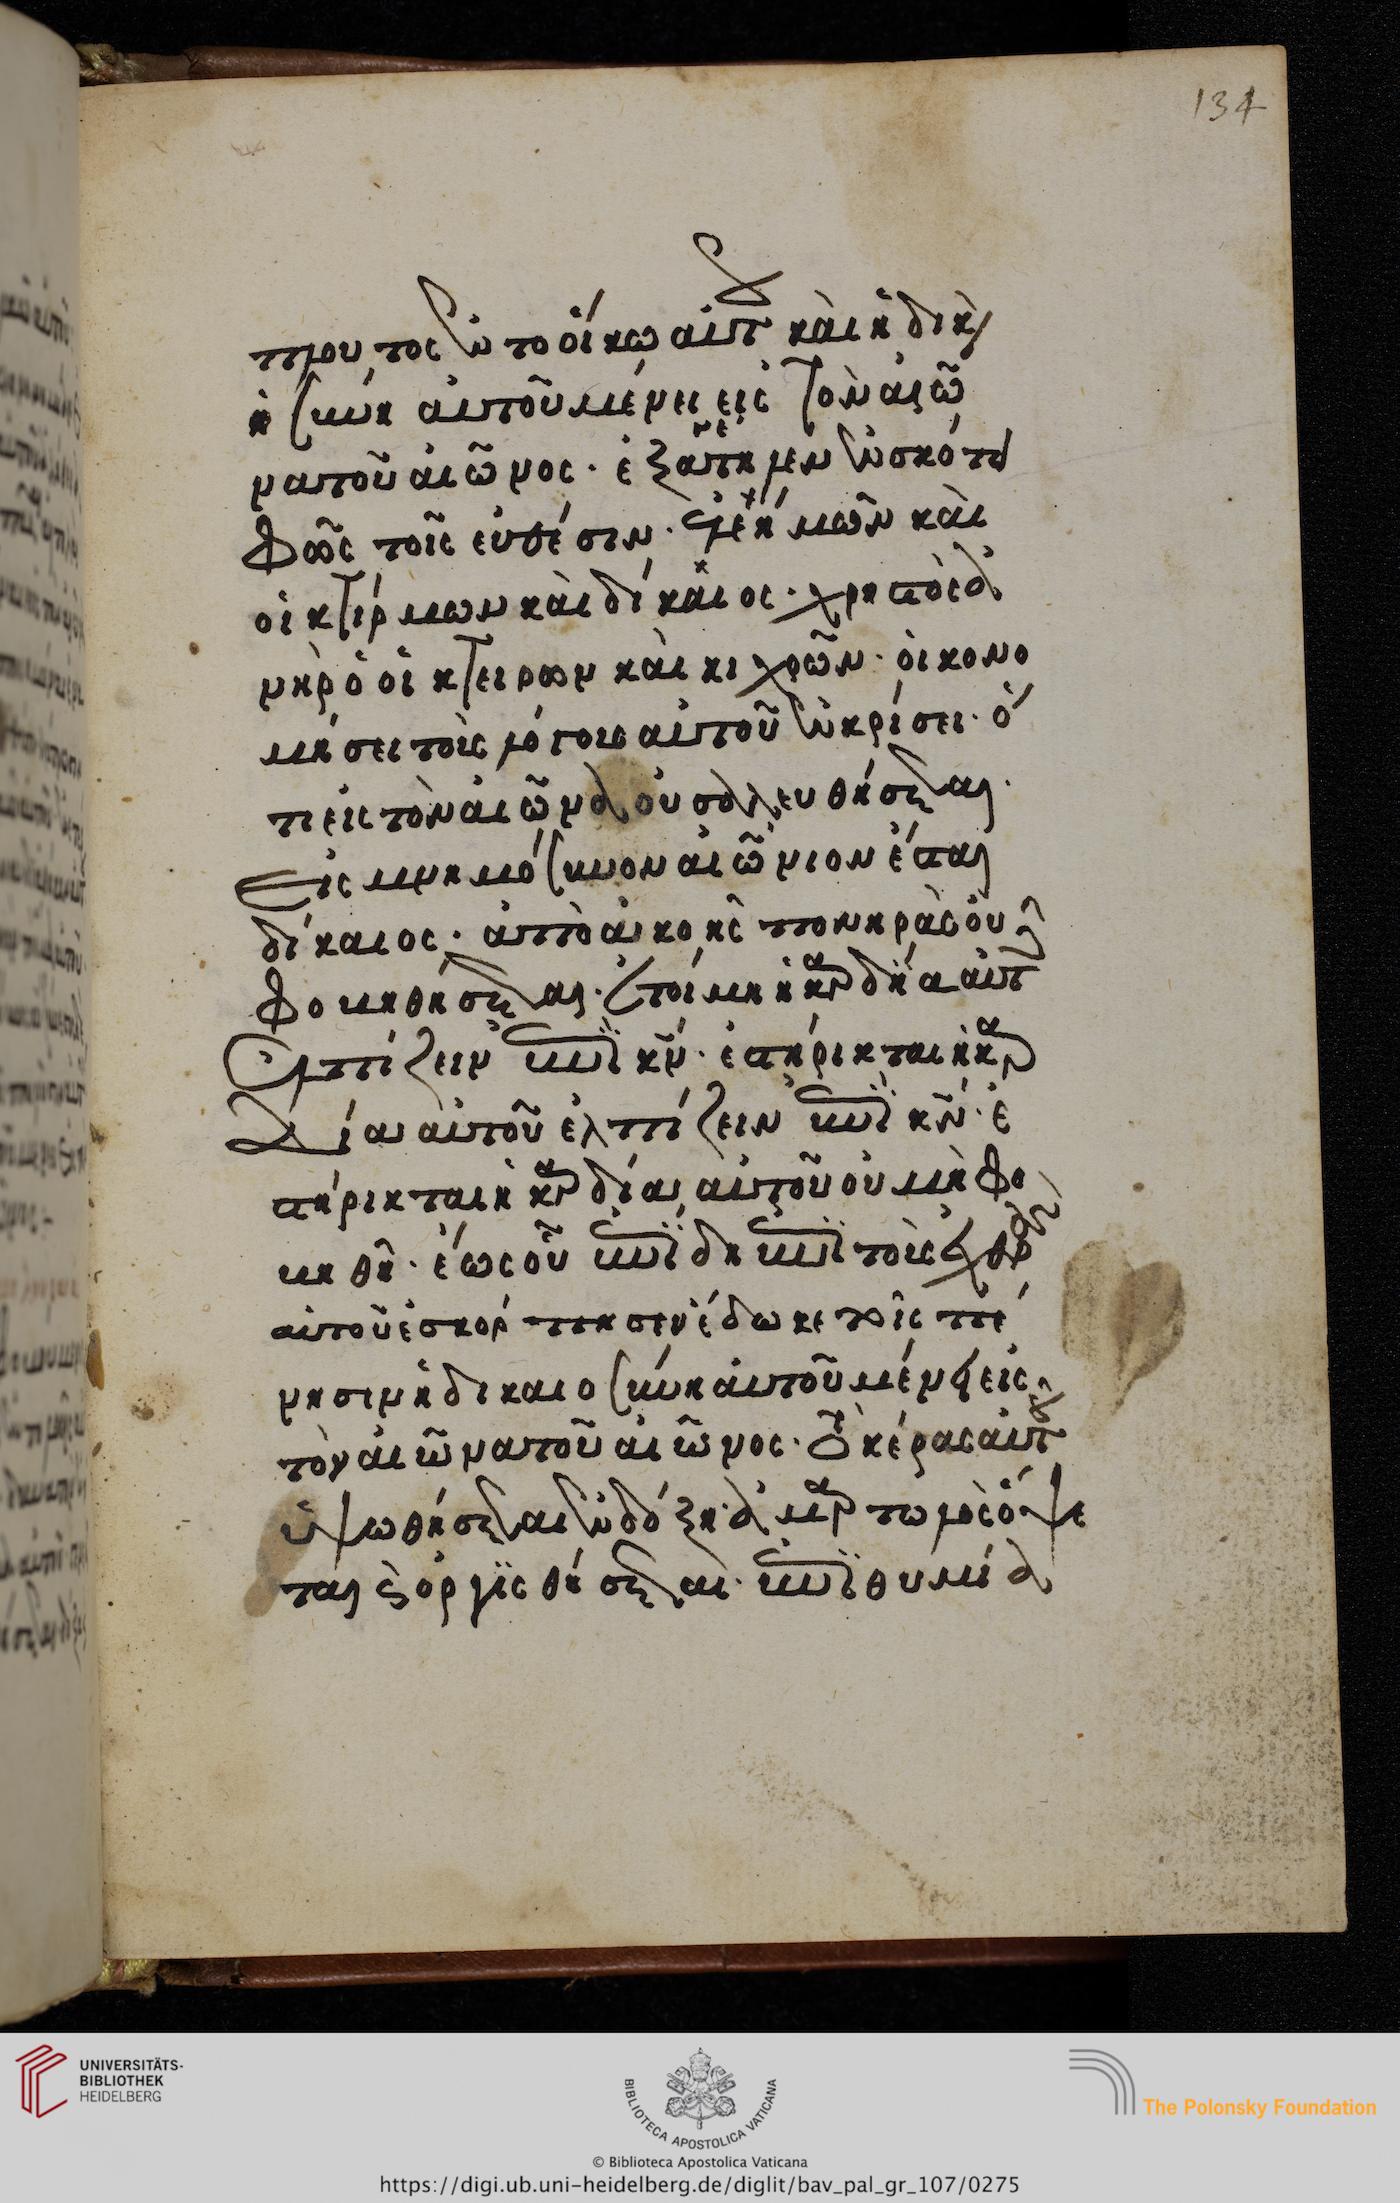 134
πλουτος ἐν το οἴκω αὐτοῦ καὶ ἡ δικαι
ο σύνη αὐτοῦ μένει εἰς τὸν αἰῶ
να τοῦ αἰῶνος · ἐξανέτηλεν ἐν σκότει
φῶς τοῖς εὐθέσιν · ἐλεήμων καὶ
οἰκτίρμων καὶ δίκαιος · χρηστὸς ἀ
νὴρ ὁ οἰκτείρων καὶ κιχρῶν · οἰκονο
μήσει τοὺς λόγους αὐτοῦ ἐν κρίσει · ὅ
τι εἰς τὸν αἰῶνα οὐ σαλευθήσεται ·
Εἰς μνημόσυνον αἰώνιον ἔσται
δίκαιος · ἀπὸ ἀκοῆς πονηρὰς οὐ
φοβηθήσεται · ἑτοίμη ἡ καρδία αὐτοῦ
ἐλπίζειν ἐπὶ κν · ἐστήρικται ἡ καρ
δία αὐτοῦ ἐλπίζειν ἐπὶ κν · ἐ
στήρικται ἡ καρδία αὐτοῦ οὐ μὴ φο
βηθῆ · ἕως οὗ ἐπίδη ἐπὶ τοὺς ἐχθροὺς
αὐτοῦ ἐσκόρπησεν ἔδωκε τοῖς πέ
νησιν ἡ δικαιοσύνη αὐτοῦ μένει εἰς
τὸν αἰῶνα τοῦ αἰῶνος · τὸ κέρας αὐτοῦ
ὑψωθήσεται ἐν δόξη · ἁμαρτωλὸς ὄψε
ται καὶ ὀργϊσθήσεται · ἐπϊθυμία
UNIVERSITÄTS-
BIBLIOTHEK
HEIDELBERG
BIBLIOTECA APOSTOLICA VATICANA
The Polonsky Foundation
© Biblioteca Apostolica Vaticana
https://digi.ub.uni-heidelberg.de/diglit/bav_pal_gr_107/0275